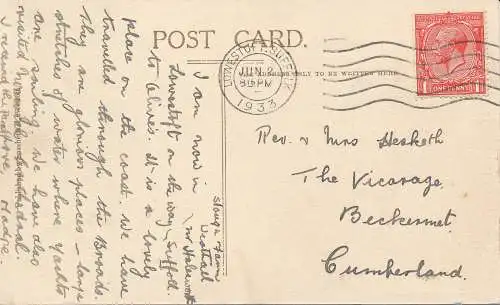 POST CARD.
ADDRESS ONLY TO BE WRITTEN HERE
LOWESTOFT SUFFOLK
JUN
8 PM
1933
ONE PENNY
Slough Farm
Westhall
Nr Halesworth
I am now in
Lowestoft on the way
to Olive's. It is a lovely
place on the coast. We have
travelled through the Broads.
They are glorious places - large
stretches of water where yachts
are sailing. We have also
visited Cathedral
Suffolk
Rev. & Mrs Hesketh
The Vicarage
Beckermet
Cumberland